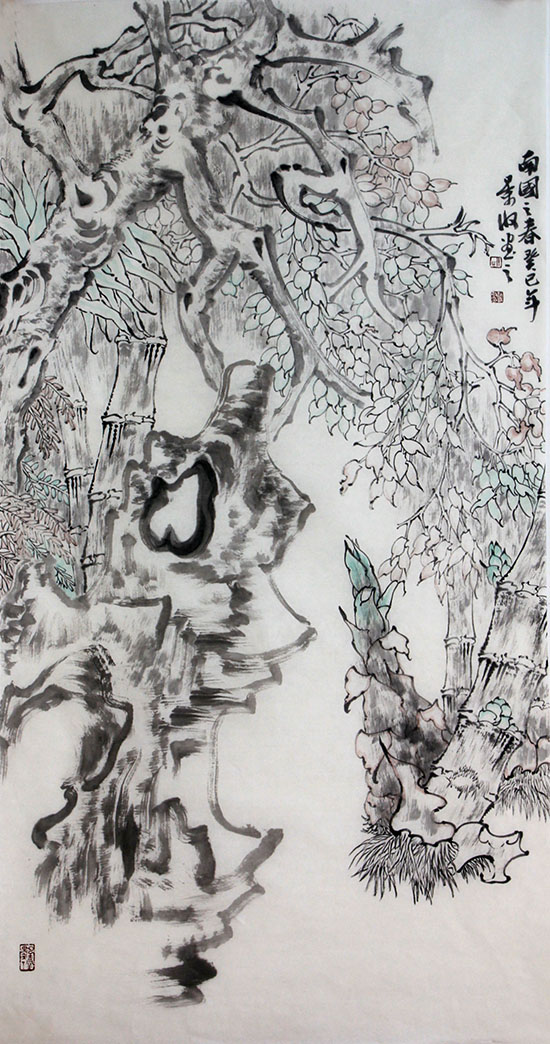 南國之春癸巳年
景画之